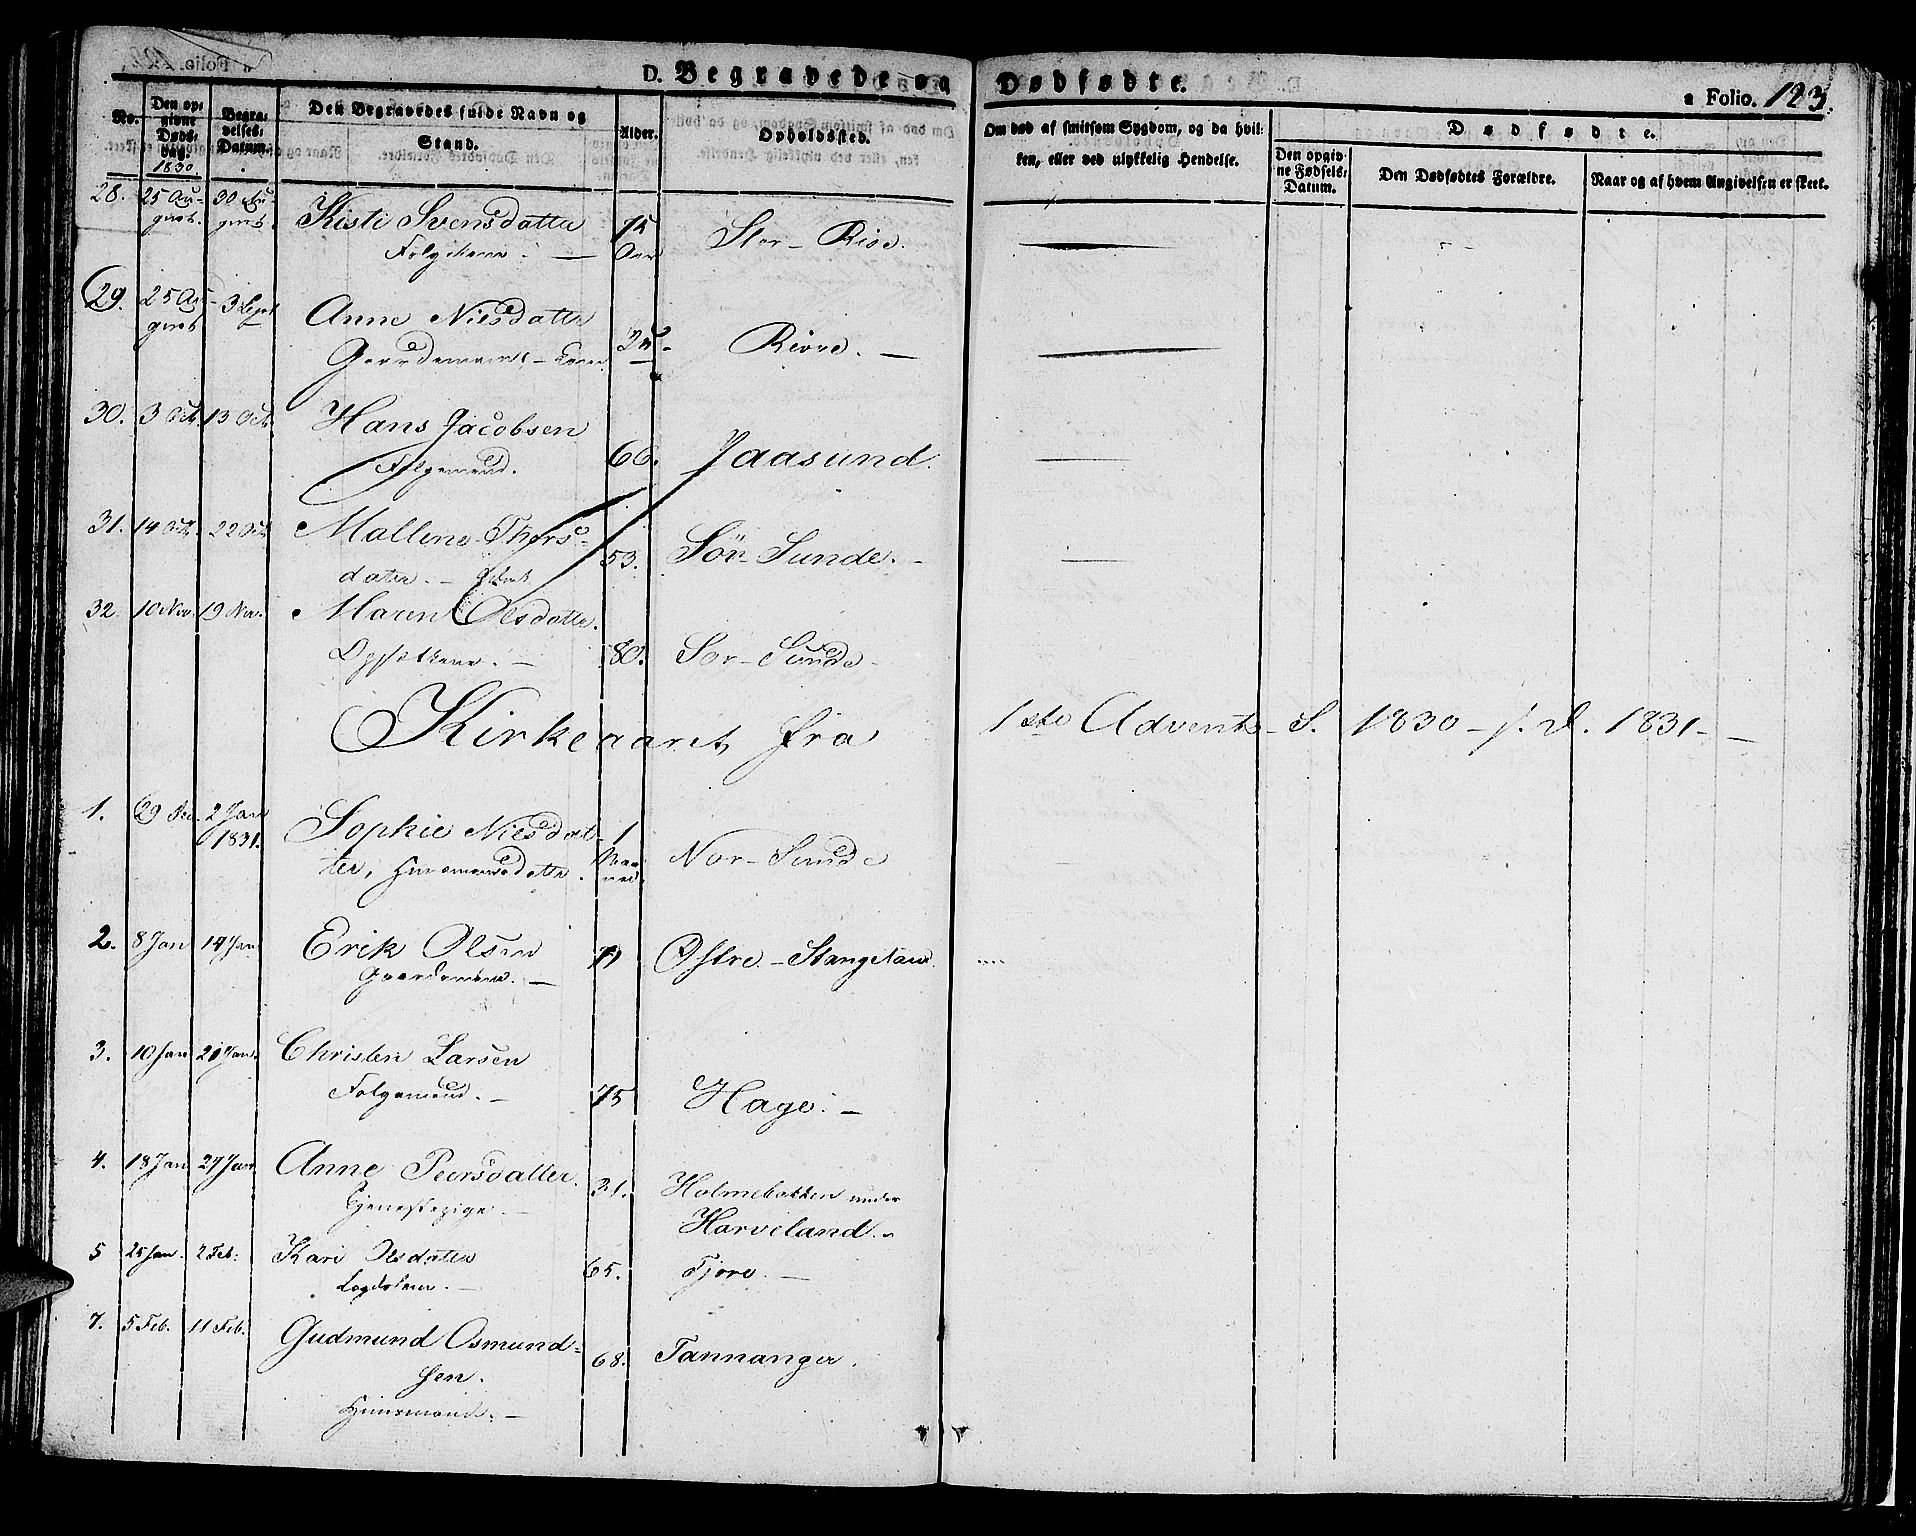 D. Begravede og Dødfødte.
a Folio. 123.
No.
Den op:
givne
Døds:
dag.
1830
Begra:
velses:
Datum.
Den Begravedes fulde Navn og
Stand.
Alder.
Opholdssted.
Om død af smitsom Sygdom, og da hvil:
ken, eller ved ulykkelig Hendelse.
Dødfødte.
Den opgiv:
ne Fødsels:
Datum.
Den Dødfødtes Forældre.
Naar og af hvem Angivelsen er skeet.
28. 25 Au- 30 Au- Kisti Svensdatter
gust. gust. Aar Stor-Rise.
29. 25 Au- 3 Sept Anne Nielsdatter
gust Gaardmands- Riove.
30. 3 Oct. 13 Oct. Hans Jacobsen
Folgemand. 66. Jaasund.
31. 14 Oct. 22 Oct. Mallene Thors-
datter. 53. Sör-Sunde.
32. 10 Nov. 19 Nov. Maren Olsdatter.
80. Sør-Sunde
Kirkeaaret fra 1ste Advents-S. 1830 - 1831-
1. 29 Dec. 2 Jan Sophie Nielsdat- 1
1831. ter, Huusmandsdatter. Maa-
ned. Nor-Sunde
2. 8 Jan 14 Jan Erik Olsen
Gaardmand. Østre-Stangeland.
3. 10 Jan 20 Jan. Christen Larsen
Folgemand. 75 Hage.
4. 18 Jan 27 Jan Anne Peersdatter. 31. Holmebakken under
Tjenestepige. Harveland.
5 25 Jan. 2 Feb: Kari Olsdatter
65. Tjore.
7. 5 Feb. 11 Feb. Gudmund Osmund-
sen. 68. Tannanger.
Huusmand.